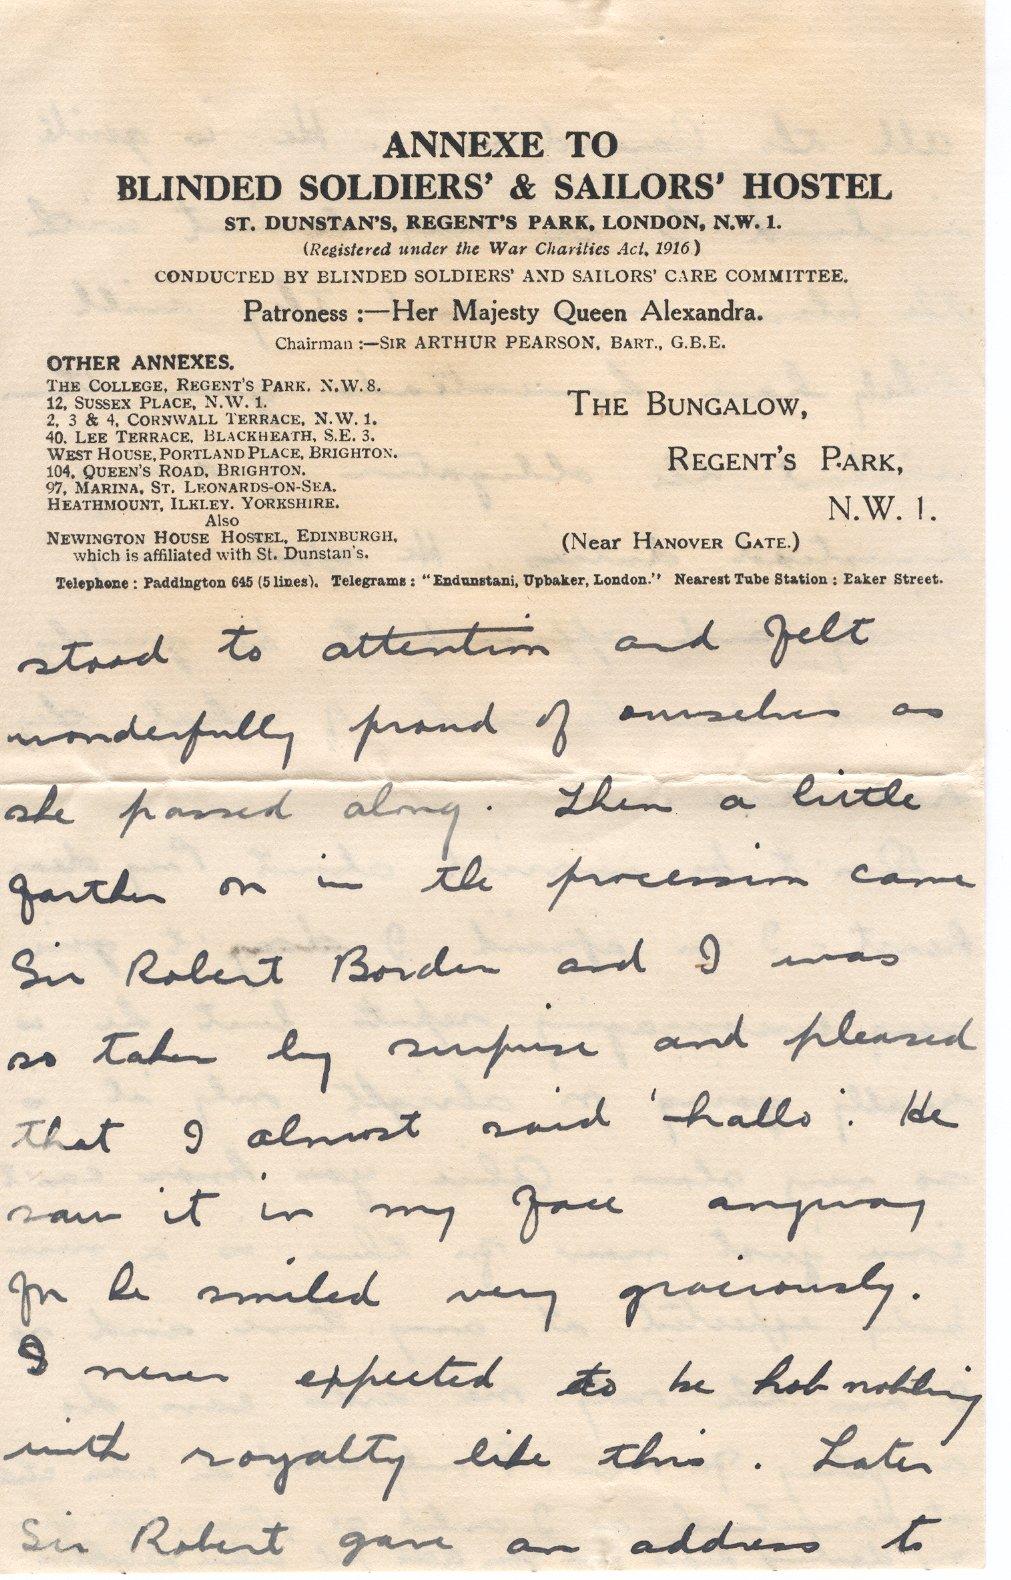 ANNEXE TO
BLINDED SOLDIERS' & SAILORS' HOSTEL
ST. DUNSTAN'S, REGENT'S PARK, LONDON, N.W. 1.
(Registered under the War Charities Act, 1916)
CONDUCTED BY BLINDED SOLDIERS' AND SAILORS' CARE COMMITTEE.
Patroness :—Her Majesty Queen Alexandra.
Chairman :—SIR ARTHUR PEARSON, BART., G.B.E.
OTHER ANNEXES.
THE COLLEGE, REGENT'S PARK, N.W. 8.
12, SUSSEX PLACE, N.W. 1.
2, 3 & 4, CORNWALL TERRACE, N.W. 1.
40, LEE TERRACE, BLACKHEATH, S.E. 3.
WEST HOUSE, PORTLAND PLACE, BRIGHTON.
104, QUEEN'S ROAD, BRIGHTON.
97, MARINA, ST. LEONARDS-ON-SEA.
HEATHMOUNT, ILKLEY. YORKSHIRE.
Also
NEWINGTON HOUSE HOSTEL, EDINBURGH,
which is affiliated with St. Dunstan's.
THE BUNGALOW,
REGENT'S PARK,
N.W. 1.
(Near HANOVER GATE.)
Telephone : Paddington 645 (5 lines). Telegrams : "Endunstani, Upbaker, London." Nearest Tube Station : Baker Street.
stood to attention and felt
wonderfully proud of ourselves as
she passed along. Then a little
farther on in the procession came
Sir Robert Borden and I was
so taken by surprise and pleased
that I almost said 'hallo'. He
saw it in my face anyway
for he smiled very graciously.
I never expected to be hob nobbing
with royalty like this. Later
Sir Robert gave an address to